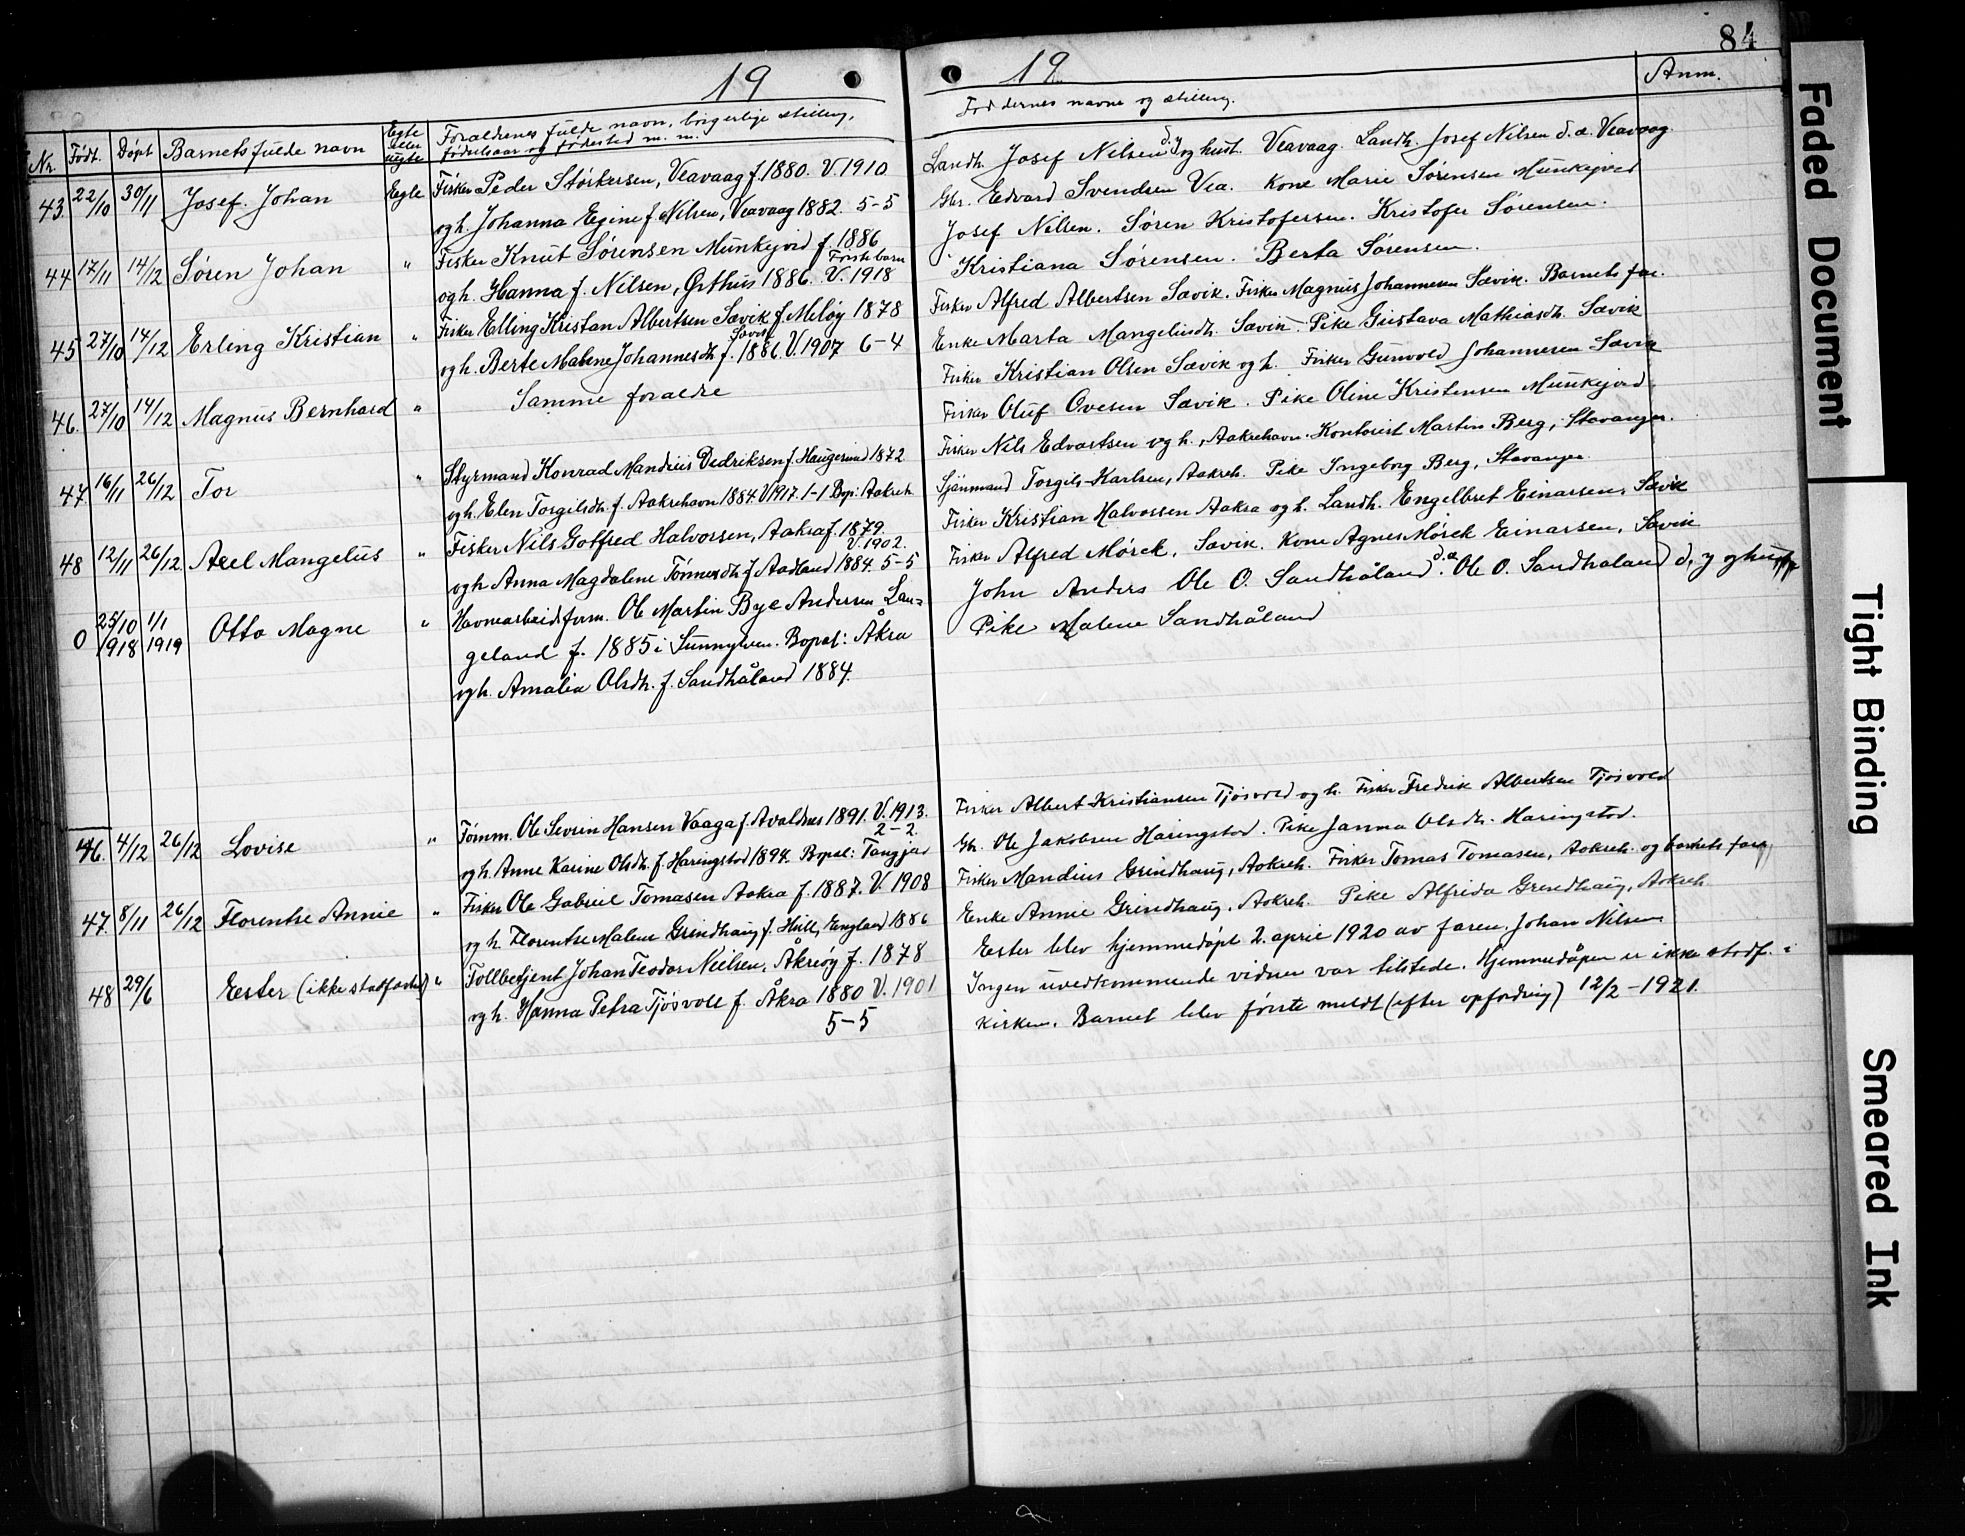 84
19
19
Anm.
Nr.
Født.
Døpt
Barnets fulde navn
Egte eller uegte
Forældrenes fulde navn, borgerlige stilling,
fødselsaar og fødested m. m.
Faddernes navne og stilling.
43. 22/10 30/11 Josef Johan Egte Fisker Peder Størkersen, Veavaag f. 1880. V. 1910
og h. Johanna Egine f. Nilsen, Veavaag 1882. 5-5
Landh. Josef Nilsen d. y. og hust. Veavaag. Landh. Josef Nilsen d. æ. Veavaag.
Gbr. Edvard Svendsen Vea. Kone Marie Sørensen Munkejord
44 17/11 14/12 Søren Johan " Fisker Knut Sørensen Munkejord f. 1886
Første barn
og h. Hanna f. Nilsen, Ørthus 1886. V. 1918
Josef Nilsen. Søren Kristofersen. Kristofer Sørensen.
Kristiana Sørensen. Berta Sørensen.
45 27/10 14/12 Erling Kristian " Fisker Elling Kristan Albertsen Sævik f. Meløy 1878
Sævik
og h. Berte Malene Johannesdh f. 1886 V. 1907 6-4
Fisker Alfred Albertsen Sævik. Fisker Magnus Johannesen Sævik. Barnets far.
Enke Marta Mangelusdh. Sævik. Pike Gustava Mathiasdh. Sævik
46. 27/10 14/12 Magnus Bernhard " Samme forældre
Fisker Kristian Olsen Sævik og h. Fisker Gunvold Johannesen Sævik
Fisker Oluf Ovesen Sævik. Pike Oline Kristensen Munkejord
47. 16/11 26/12 Tor " Styrmand Konrad Mandius Dedriksen f. Haugesund 1872
og h. Elen Torgilsdh. f. Aakrehavn 1884. V. 1917. 1-1 Bop: Aakreh.
Fisker Nils Edvartsen og h., Aakrehavn. Kontorist Martin Berg, Stavanger.
Sjømand Torgils Karlsen, Aakreh. Pike Ingeborg Berg, Stavanger
48 12/11 26/12 Axel Mangelus " Fisker Nils Gotfred Halvorsen, Aakra f. 1879.
V. 1902.
og h. Anna Magdalene Tønnesdh. f. Aadland 1884. 5-5
Fisker Kristian Halvorsen Aakra og h. Landh. Engelbret Einarsen, Sævik
Fisker Alfred Mørck, Sævik. Kone Agnes Mørck Einarsen, Sævik
0 25/10 1918 1/1 1919 Otto Magne " Havnearbeidsform. Ole Martin Bye Andersen Lan=
geland f. 1885 i Sunnylven. Bopæl: Åkra
og h. Amalia Olsdh. f. Sandhåland 1884.
John Anders Ole O. Sandhåland d. æ. Ole O. Sandhaland d. y og hustr
Pike Malene Sandhåland
46. 4/12 26/12 Lovise " Tømm. Ole Sevrin Hansen Vaaga f. Avaldnes 1891. V. 1913.
2-2.
og h. Anne Karine Olsdh. f. Haringstad 1894. Bopæl: Tangjar
Fisker Albert Kristiansen Tjøsvold og h. Fisker Fredrik Albertsen Tjøsvold
Gbr. Ole Jakobsen Haringstad. Pike Janna Olsdh. Haringstad.
47. 8/11 26/12 Florentse Annie " Fisker Ole Gabriel Tomasen Aakra f. 1887. V. 1908
og h. Florentse Malene Grindhaug f. Hull, England 1886
Fisker Mandius Grindhaug, Aakreh. Fisker Tomas Tomasen, Aakreh. og barnets far
Enke Annie Grindhaug, Aakreh. Pike Alfrida Grindhaug, Aakreh.
48 29/6 Ester (ikke stadfæstet) " Tollbetjent Johan Teodor Nielsen, Åkreøy f. 1878
og h. Hanna Petra Tjøsvoll f. Åkra 1880 V. 1901
5-5
Ester blev hjemmedøpt 2. april 1920 av faren Johan Nilsen
Ingen uvedkommende vidner var tilstede. Hjemmedåpen er ikke stadf. i
kirken. Barnet blev først meldt (efter opfordring) 12/2-1921.
Faded Document
Tight Binding
Smeared Ink